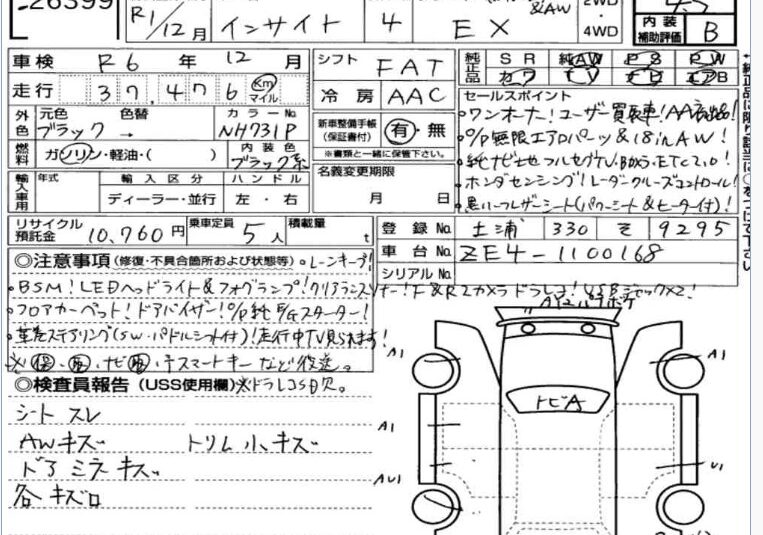 26399
R1/12月 インサイト 4 EX &AW 2WD・4WD
内装補助評価 B
車検 R6 年 12 月 シフト FAT 純正品 SR 純AW PS PW
走行 37,476 Km マイル 冷房 AAC カワ TV ナビ エアB
外色 元色 色替 カラーNo. 新車整備手帳(保証書付) 有・無 セールスポイント
ブラック → NH731P ※書類と一緒に保管下さい。 ・ワンオーナー!ユーザー買取車!AA初出品!
燃料 ガソリン・軽油・( ) 内装色 ブラック系 ・O/P無限エアロパーツ&18inAW!
輸入車用 年式 輸入区分 ハンドル 名義変更期限 ・純ナビ七セフルセグTV.Bカメラ.ETC2.0!
ディーラー・並行 左・右 月 日 ・ホンダセンシング!レーダークルーズコントロール!
・黒ハーフレザーシート(パワーシート&ヒーター付)!
リサイクル預託金 10,760円 乗車定員 5人 積載量 t 登録No. 土浦 330 そ 9295
車台No. ZE4-1100168
シリアルNo.
◎注意事項(修復・不具合箇所および状態等)・レーンキープ!
・BSM!LEDヘッドライト&フォグランプ!クリアランスソナー!F&R2カメラドラレコ!USBジャック×2!
・フロアカーペット!ドアバイザー!O/P純E/Gスターター!
・革巻ステアリング(SW・パドルシフト付)!走行中TV見れます!
※保、取、ナビ取、スマートキーなど後送。
◎検査員報告(USS使用欄)※ドラレコSD欠。
シート スレ
AWキズ トリム小キズ
ドアミラキズ
各キズ有
トビA
A1 A1
A1
AU1 U1